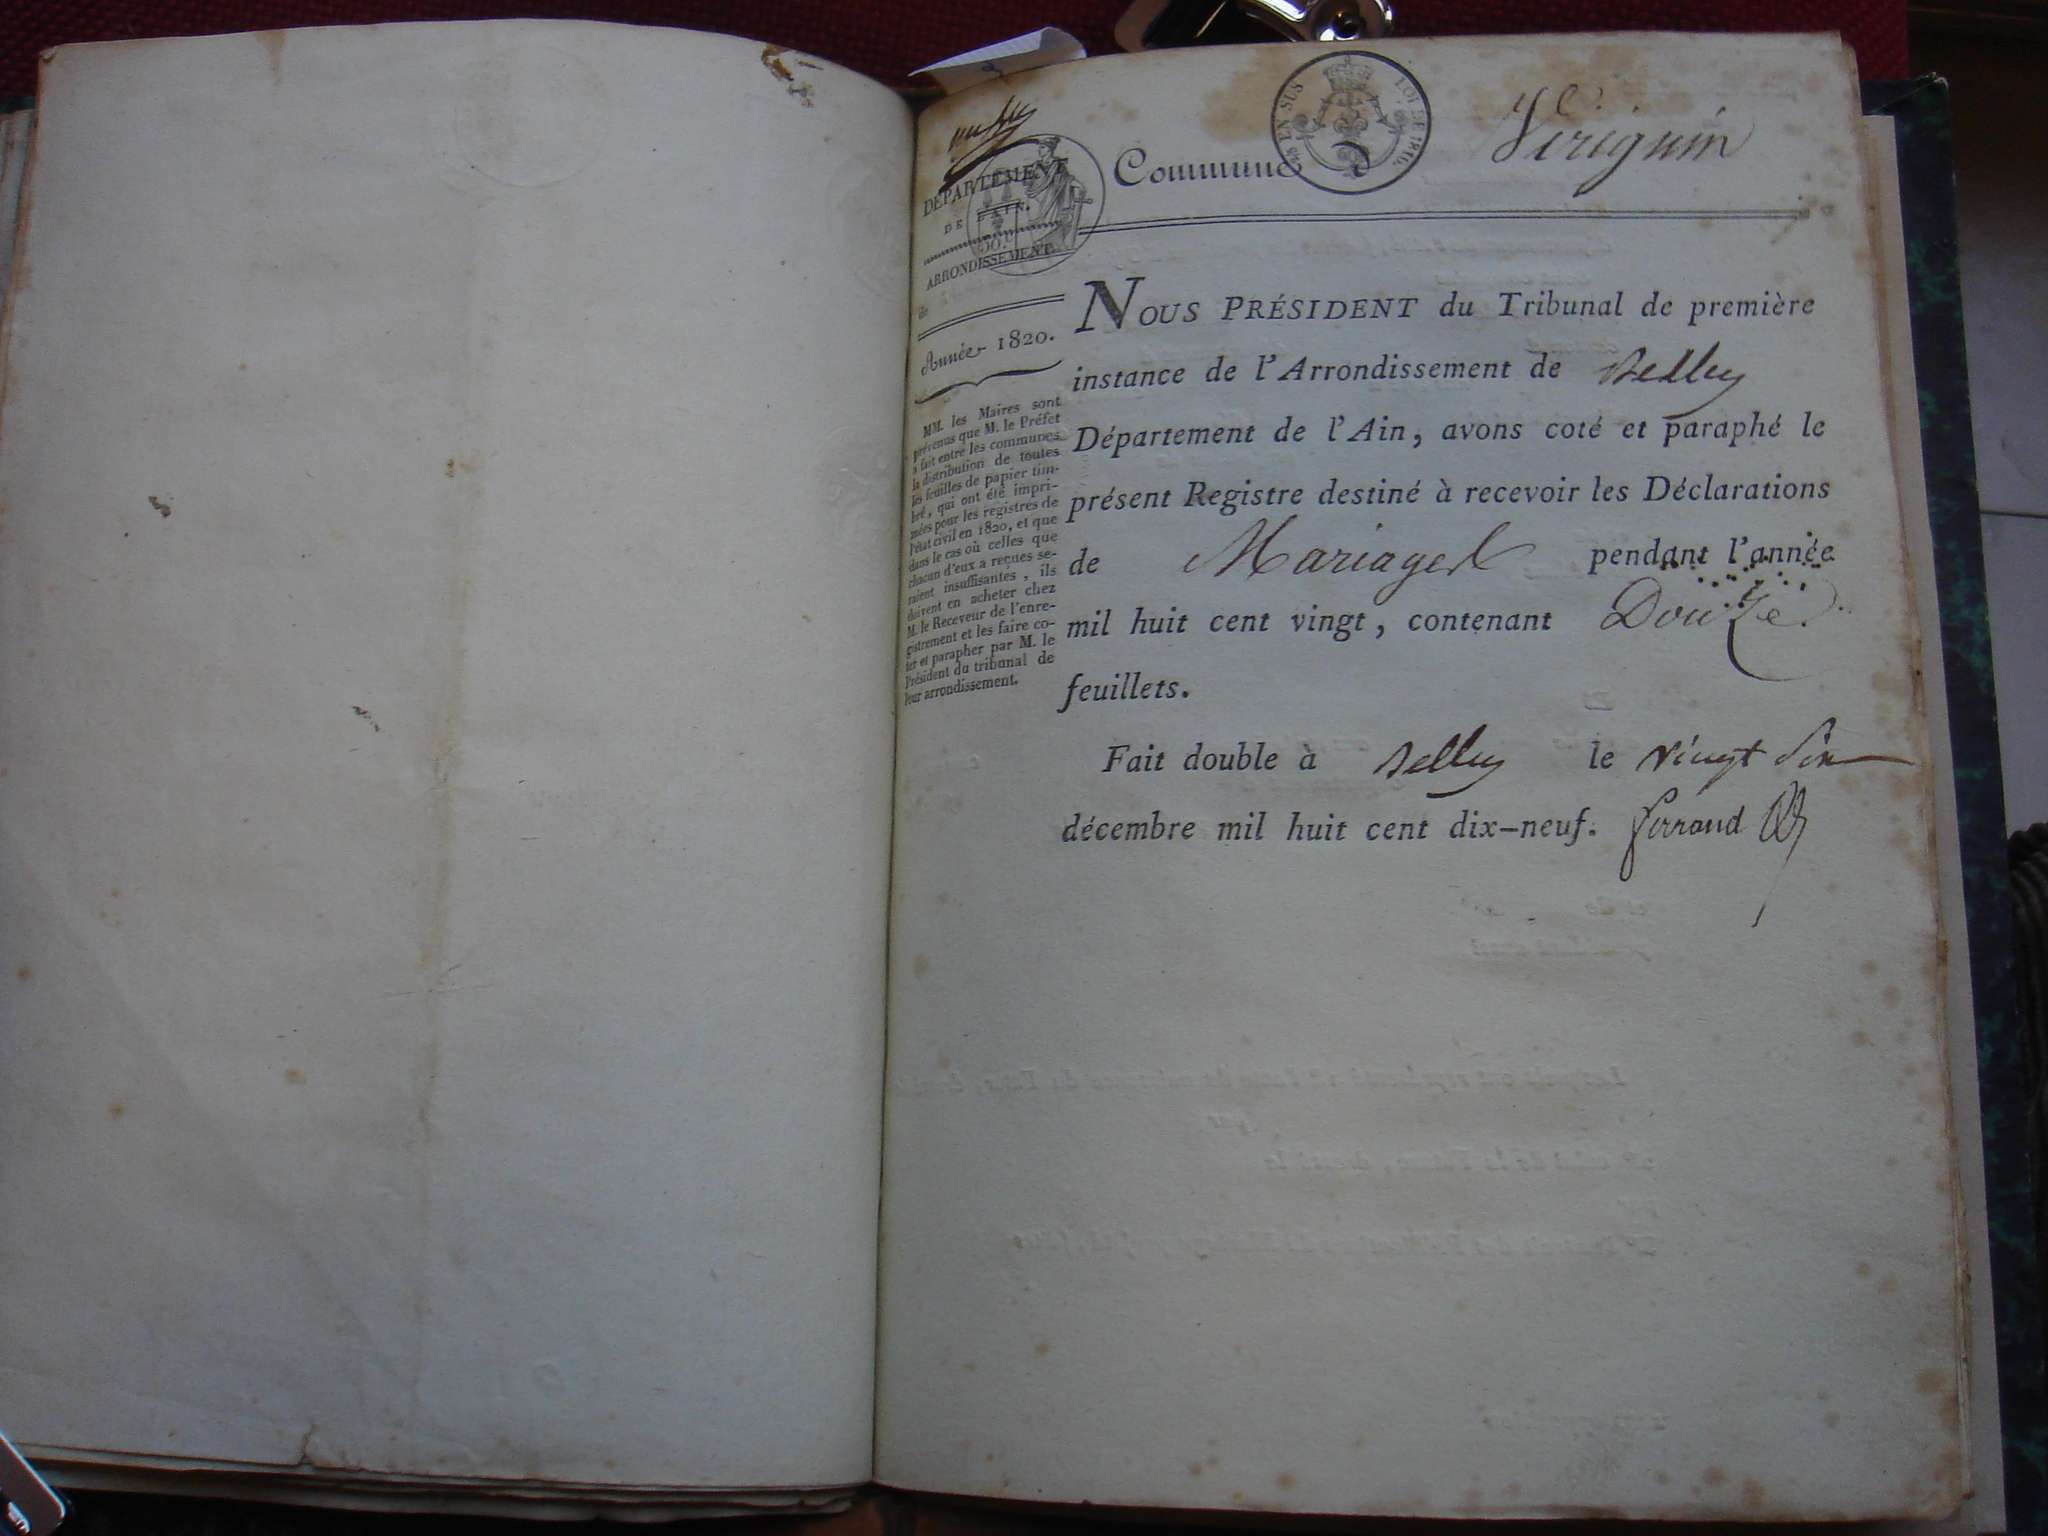 DÉPARTEMENT
DE L'AIN.
ARRONDISSEMENT
de
Année 1820.
MM. les Maires sont
prévenus que M. le Préfet
a fait entre les communes
la distribution de toutes
les feuilles de papier tim-
bré, qui ont été impri-
mées pour les registres de
l'état civil en 1820, et que
dans le cas où celles que
chacun d'eux a reçues se-
raient insuffisantes, ils
doivent en acheter chez
M. le Receveur de l'enre-
gistrement et les faire co-
ter et parapher par M. le
Président du tribunal de
leur arrondissement.
Commune Virignin
EN SUS LOI DE 1816.
NOUS PRÉSIDENT du Tribunal de première
instance de l'Arrondissement de Belley
Département de l'Ain, avons coté et paraphé le
présent Registre destiné à recevoir les Déclarations
de Mariages pendant l'année
mil huit cent vingt, contenant Douze
feuillets.
Fait double à Belley le vingt
décembre mil huit cent dix-neuf. Ferrand